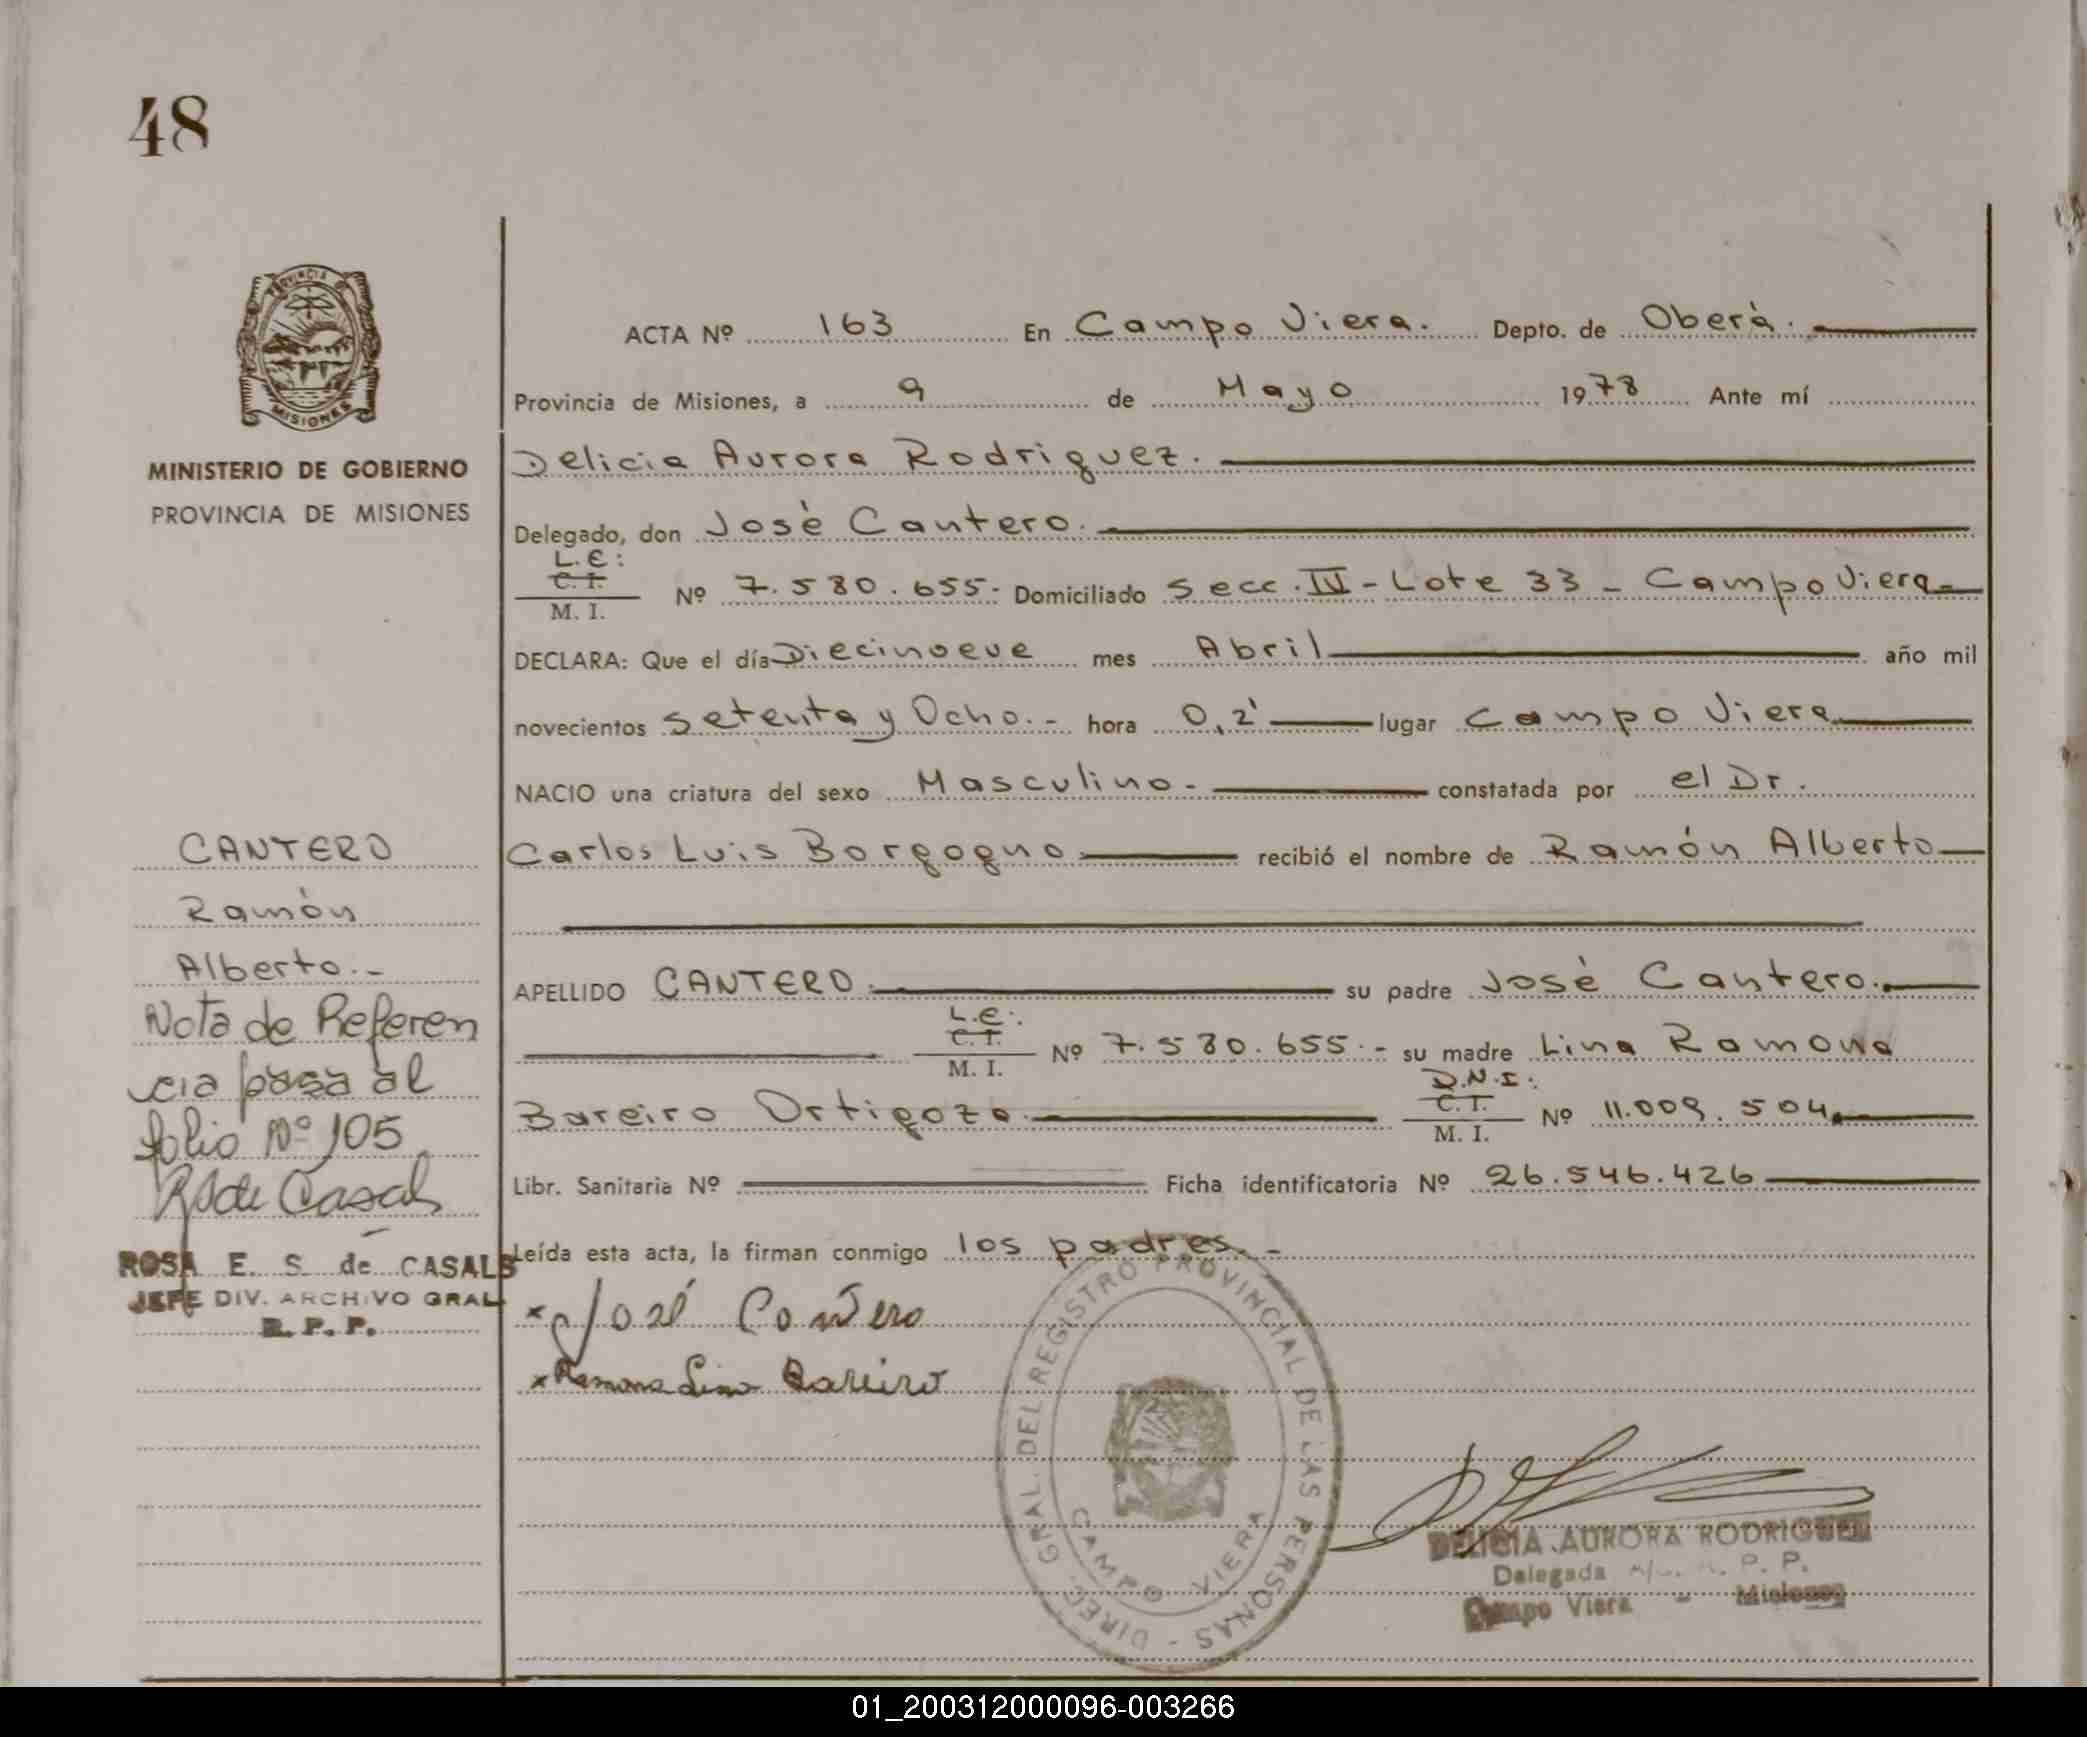 48
PROVINCIA D
MISIONES
MINISTERIO DE GOBIERNO
PROVINCIA DE MISIONES
ACTA Nº 163 En Campo Viera. Depto. de Oberá.
Provincia de Misiones, a 9 de Mayo 1978 Ante mí
Delicia Aurora Rodriguez.
Delegado, don José Cantero.
L.E:
C.I.
M. I. Nº 7.580.655.- Domiciliado Secc. IV - Lote 33 - Campo Viera-
DECLARA: Que el día Diecinueve mes Abril año mil
novecientos setenta y Ocho.- hora 0,2' lugar Campo Viera
NACIO una criatura del sexo Masculino.- constatada por el Dr.
Carlos Luis Borgogno recibió el nombre de Ramón Alberto
APELLIDO CANTERO. su padre José Cantero.
L.E:.
C.I.
M. I. Nº 7.580.655.- su madre Lina Ramona
D.N.I:
Bareiro Ortigoza. C.I.
M. I. Nº 11.009.504.
Libr. Sanitaria Nº Ficha identificatoria Nº 26.546.426
Leída esta acta, la firman conmigo los padres.-
x José Cantero
x Ramona Lina Bareiro
CANTERO
Ramón
Alberto.-
Nota de Referen
cia pasa al
folio Nº 105
RSde Casals
ROSA E. S. de CASALS
JEFE DIV. ARCHIVO GRAL
R. P. P.
DIREC. GRAL. DEL REGISTRO PROVINCIAL DE LAS PERSONAS -
CAMPO VIERA
DELICIA AURORA RODRIGUEZ
Delegada R. P. P.
Campo Viera - Misiones
01_200312000096-003266